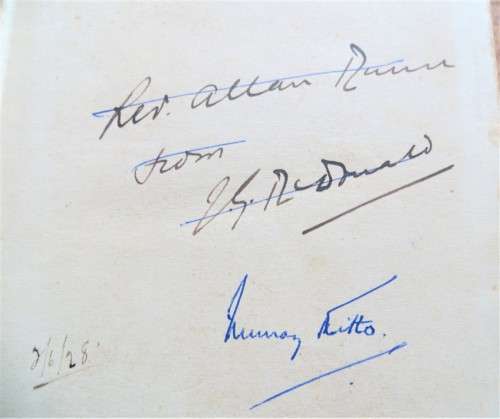 Rev. Allan Dunn
from
J. G. McDonald
Murray Kitto.
2/6/28.